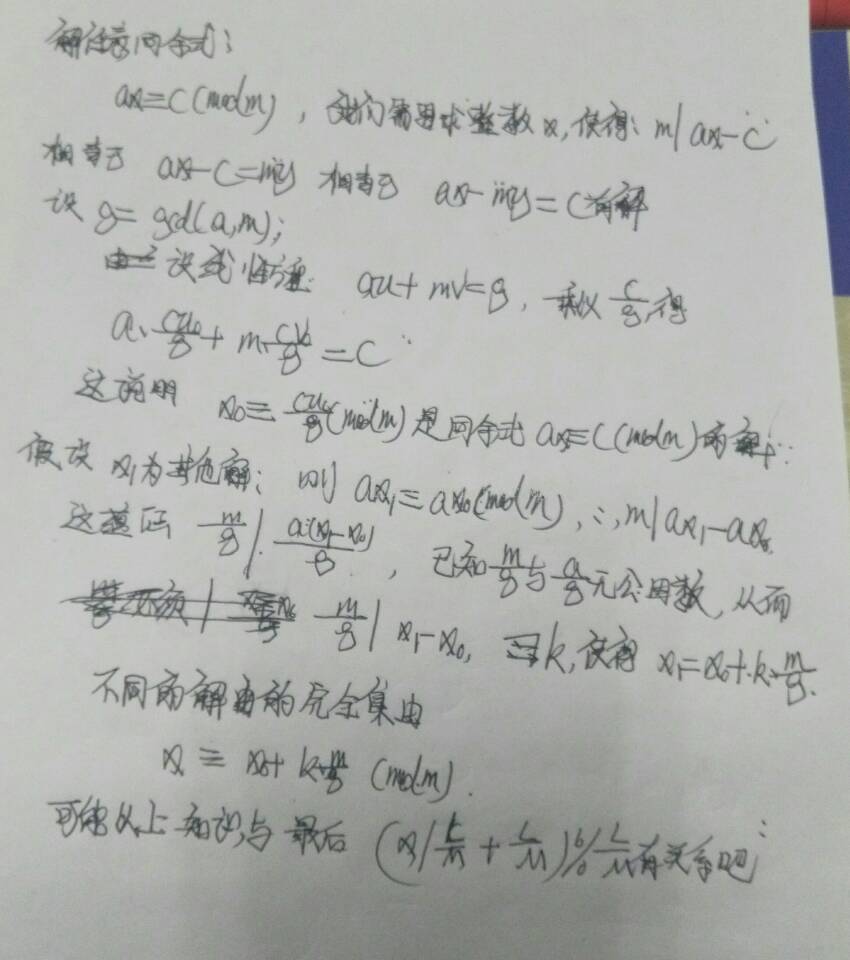 解线性同余式:
ax≡C(mod m), 我们需要求整数x, 使得: m|ax-C
相当于 ax-C=my 相当于 ax-my=C有解
设 g=gcd(a,m);
设线性方程: au+mv=g, 乘以 c/g, 得
a·cu₀/g + m·cv₀/g = C
这说明 x₀≡cu₀/g(mod m)是同余式 ax≡C(mod m)的解
假设 x₁为其他解; 则 ax₁≡ax₀(mod m), ∴m|ax₁-ax₀
这蕴含 m/g | a(x₁-x₀)/g, 已知m/g与a/g无公因数, 从而
m/g | x₁-x₀, ∃k, 使得 x₁=x₀+k·m/g.
不同的解的完全集由
x ≡ x₀+k·m/g (mod m).
可能以上知识与最后 (x/L/M + L/M)%L/M有关系吧